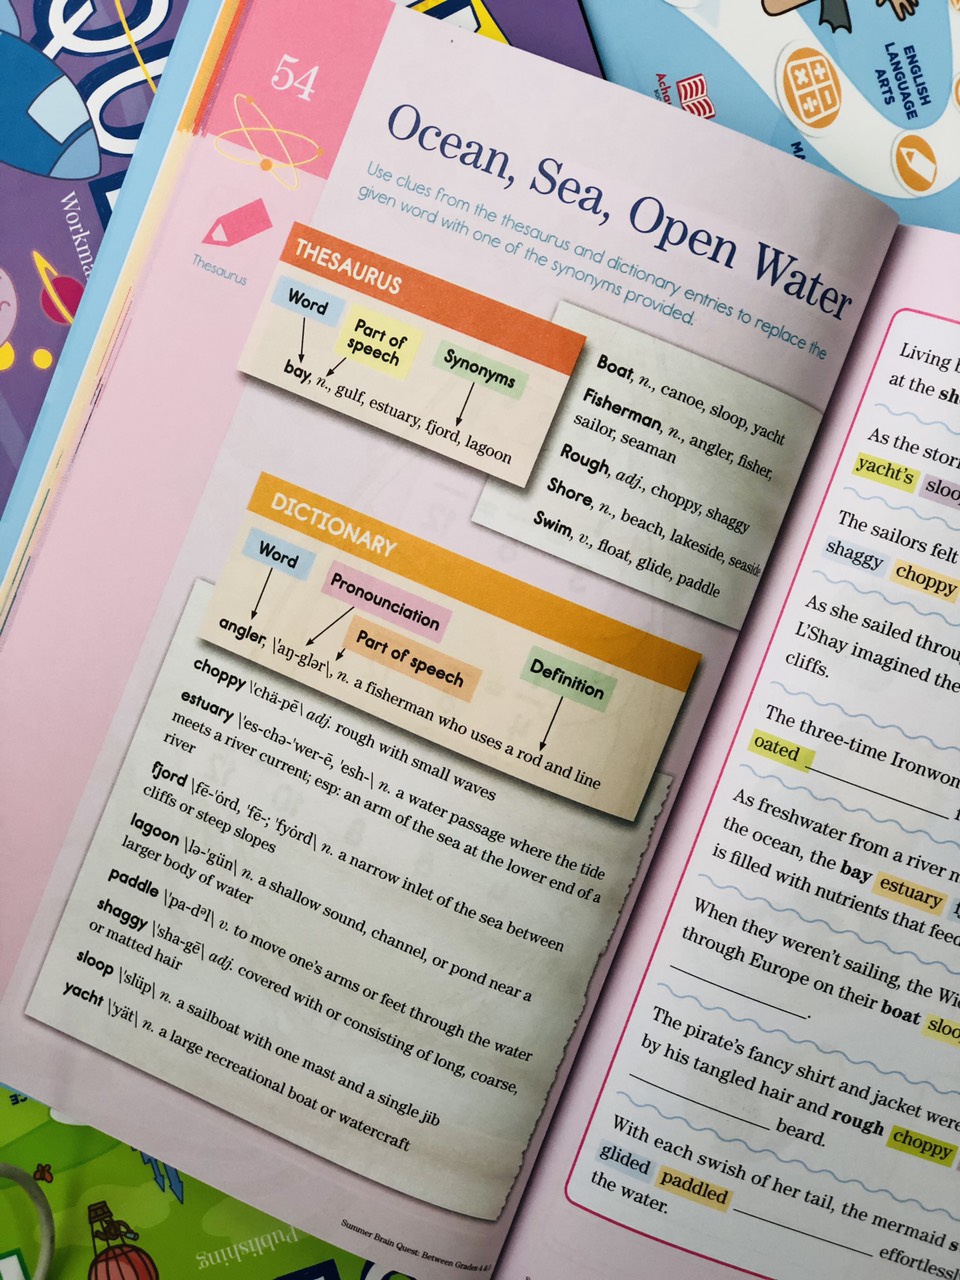 54
Ocean, Sea, Open Water
Use clues from the thesaurus and dictionary entries to replace the
given word with one of the synonyms provided.
Thesaurus
THESAURUS
Word
Part of
speech
Synonyms
bay, n., gulf, estuary, fjord, lagoon
Boat, n., canoe, sloop, yacht
Fisherman, n., angler, fisher,
sailor, seaman
Rough, adj., choppy, shaggy
Shore, n., beach, lakeside, seaside
Swim, v., float, glide, paddle
DICTIONARY
Word
Pronounciation
Part of speech
Definition
angler, \'aŋ-glər\, n. a fisherman who uses a rod and line
choppy \'chä-pē\ adj. rough with small waves
estuary \'es-chə-ˈwer-ē, 'esh-\ n. a water passage where the tide
meets a river current; esp: an arm of the sea at the lower end of a
river
fjord \fē-'ȯrd, 'fē-; 'fyȯrd\ n. a narrow inlet of the sea between
cliffs or steep slopes
lagoon \lə-'gün\ n. a shallow sound, channel, or pond near a
larger body of water
paddle \'pa-dᵊl\ v. to move one's arms or feet through the water
shaggy \'sha-gē\ adj. covered with or consisting of long, coarse,
or matted hair
sloop \'slüp\ n. a sailboat with one mast and a single jib
yacht \'yät\ n. a large recreational boat or watercraft
Summer Brain Quest: Between Grades 4 & 5
Living
at the
As the
yacht's
The sailors felt
shaggy choppy
As she sailed
L'Shay imagined the
cliffs.
The three-time
oated
As freshwater from a river
the ocean, the bay estuary
is filled with nutrients that feed
When they weren't sailing, the
through Europe on their boat
The pirate's fancy shirt and jacket were
by his tangled hair and rough choppy
beard.
With each swish of her tail, the mermaid
glided paddled
the water.
ENGLISH
LANGUAGE
ARTS
Publishing